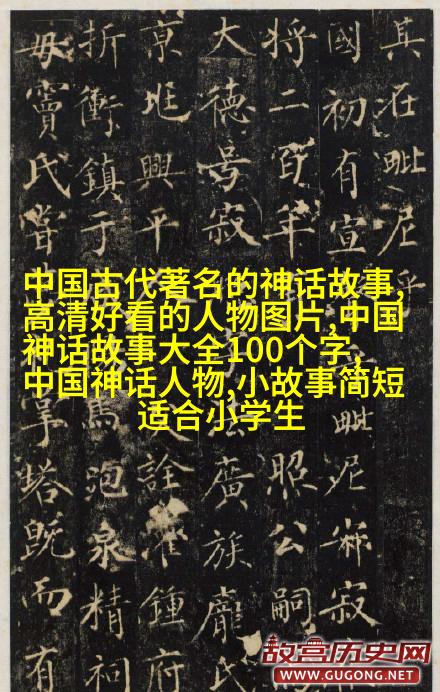 其在毗尼乎
國初有宣
毗尼寂
将二百年
照公嗣
大德号寂
廣族龐氏
京兆興平
詮鍾府
折衝鎮于
馬泡泉精祠
毋竇氏嘗
掌塔既而有
中国古代著名的神话故事,
高清好看的人物图片,中国
神话故事大全100个字,
中国神话人物,小故事简短
适合小学生
故宫历史网
WWW.GUGONG.NET